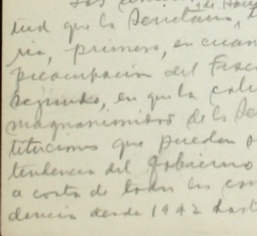 tud que la Secretaría,
ria, primero, en cuan
preocupación del Fisc
segundo, en que la cali
magnanimidad de la Se
tituciones que puedan
tendencia del Gobierno
a costa de todas las con
dencia desde 1942 hast